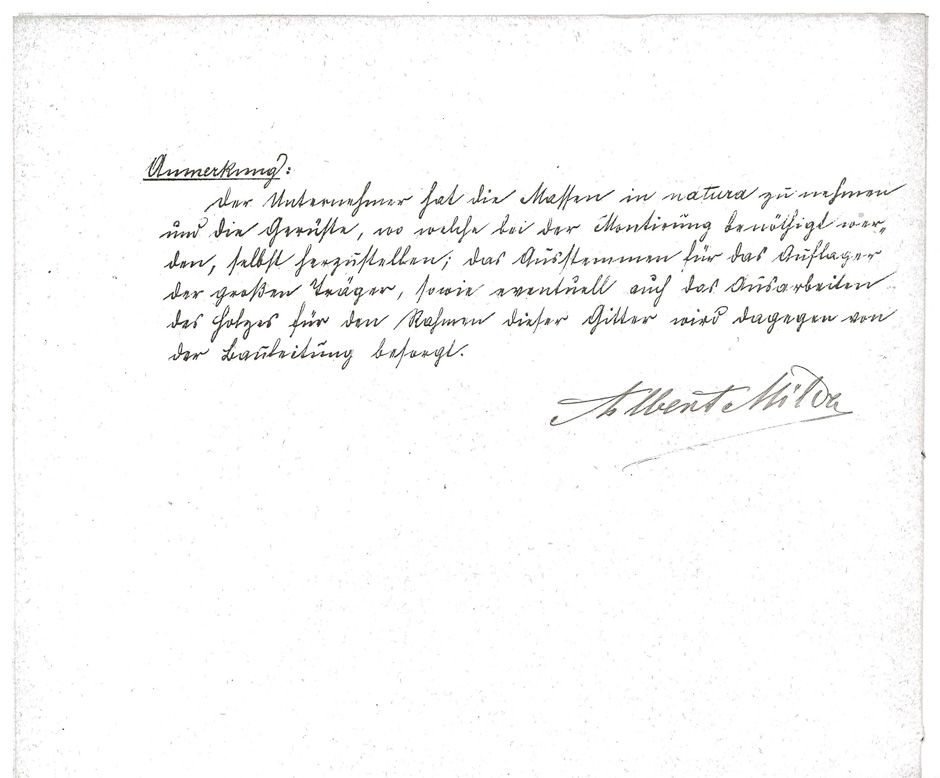 Anmerkung:
Der Unternehmer hat die Massen in natura zu nehmen
und die Gerüste, wo welche bei der Montirung benöthigt wer-
den, selbst herzustellen; das Ausstemmen für das Auflager
der großen Träger, sowie eventuell auch das Ausarbeiten
des Holzes für den Rahmen dieser Gitter wird dagegen von
der Bauleitung besorgt.
Albert Milde